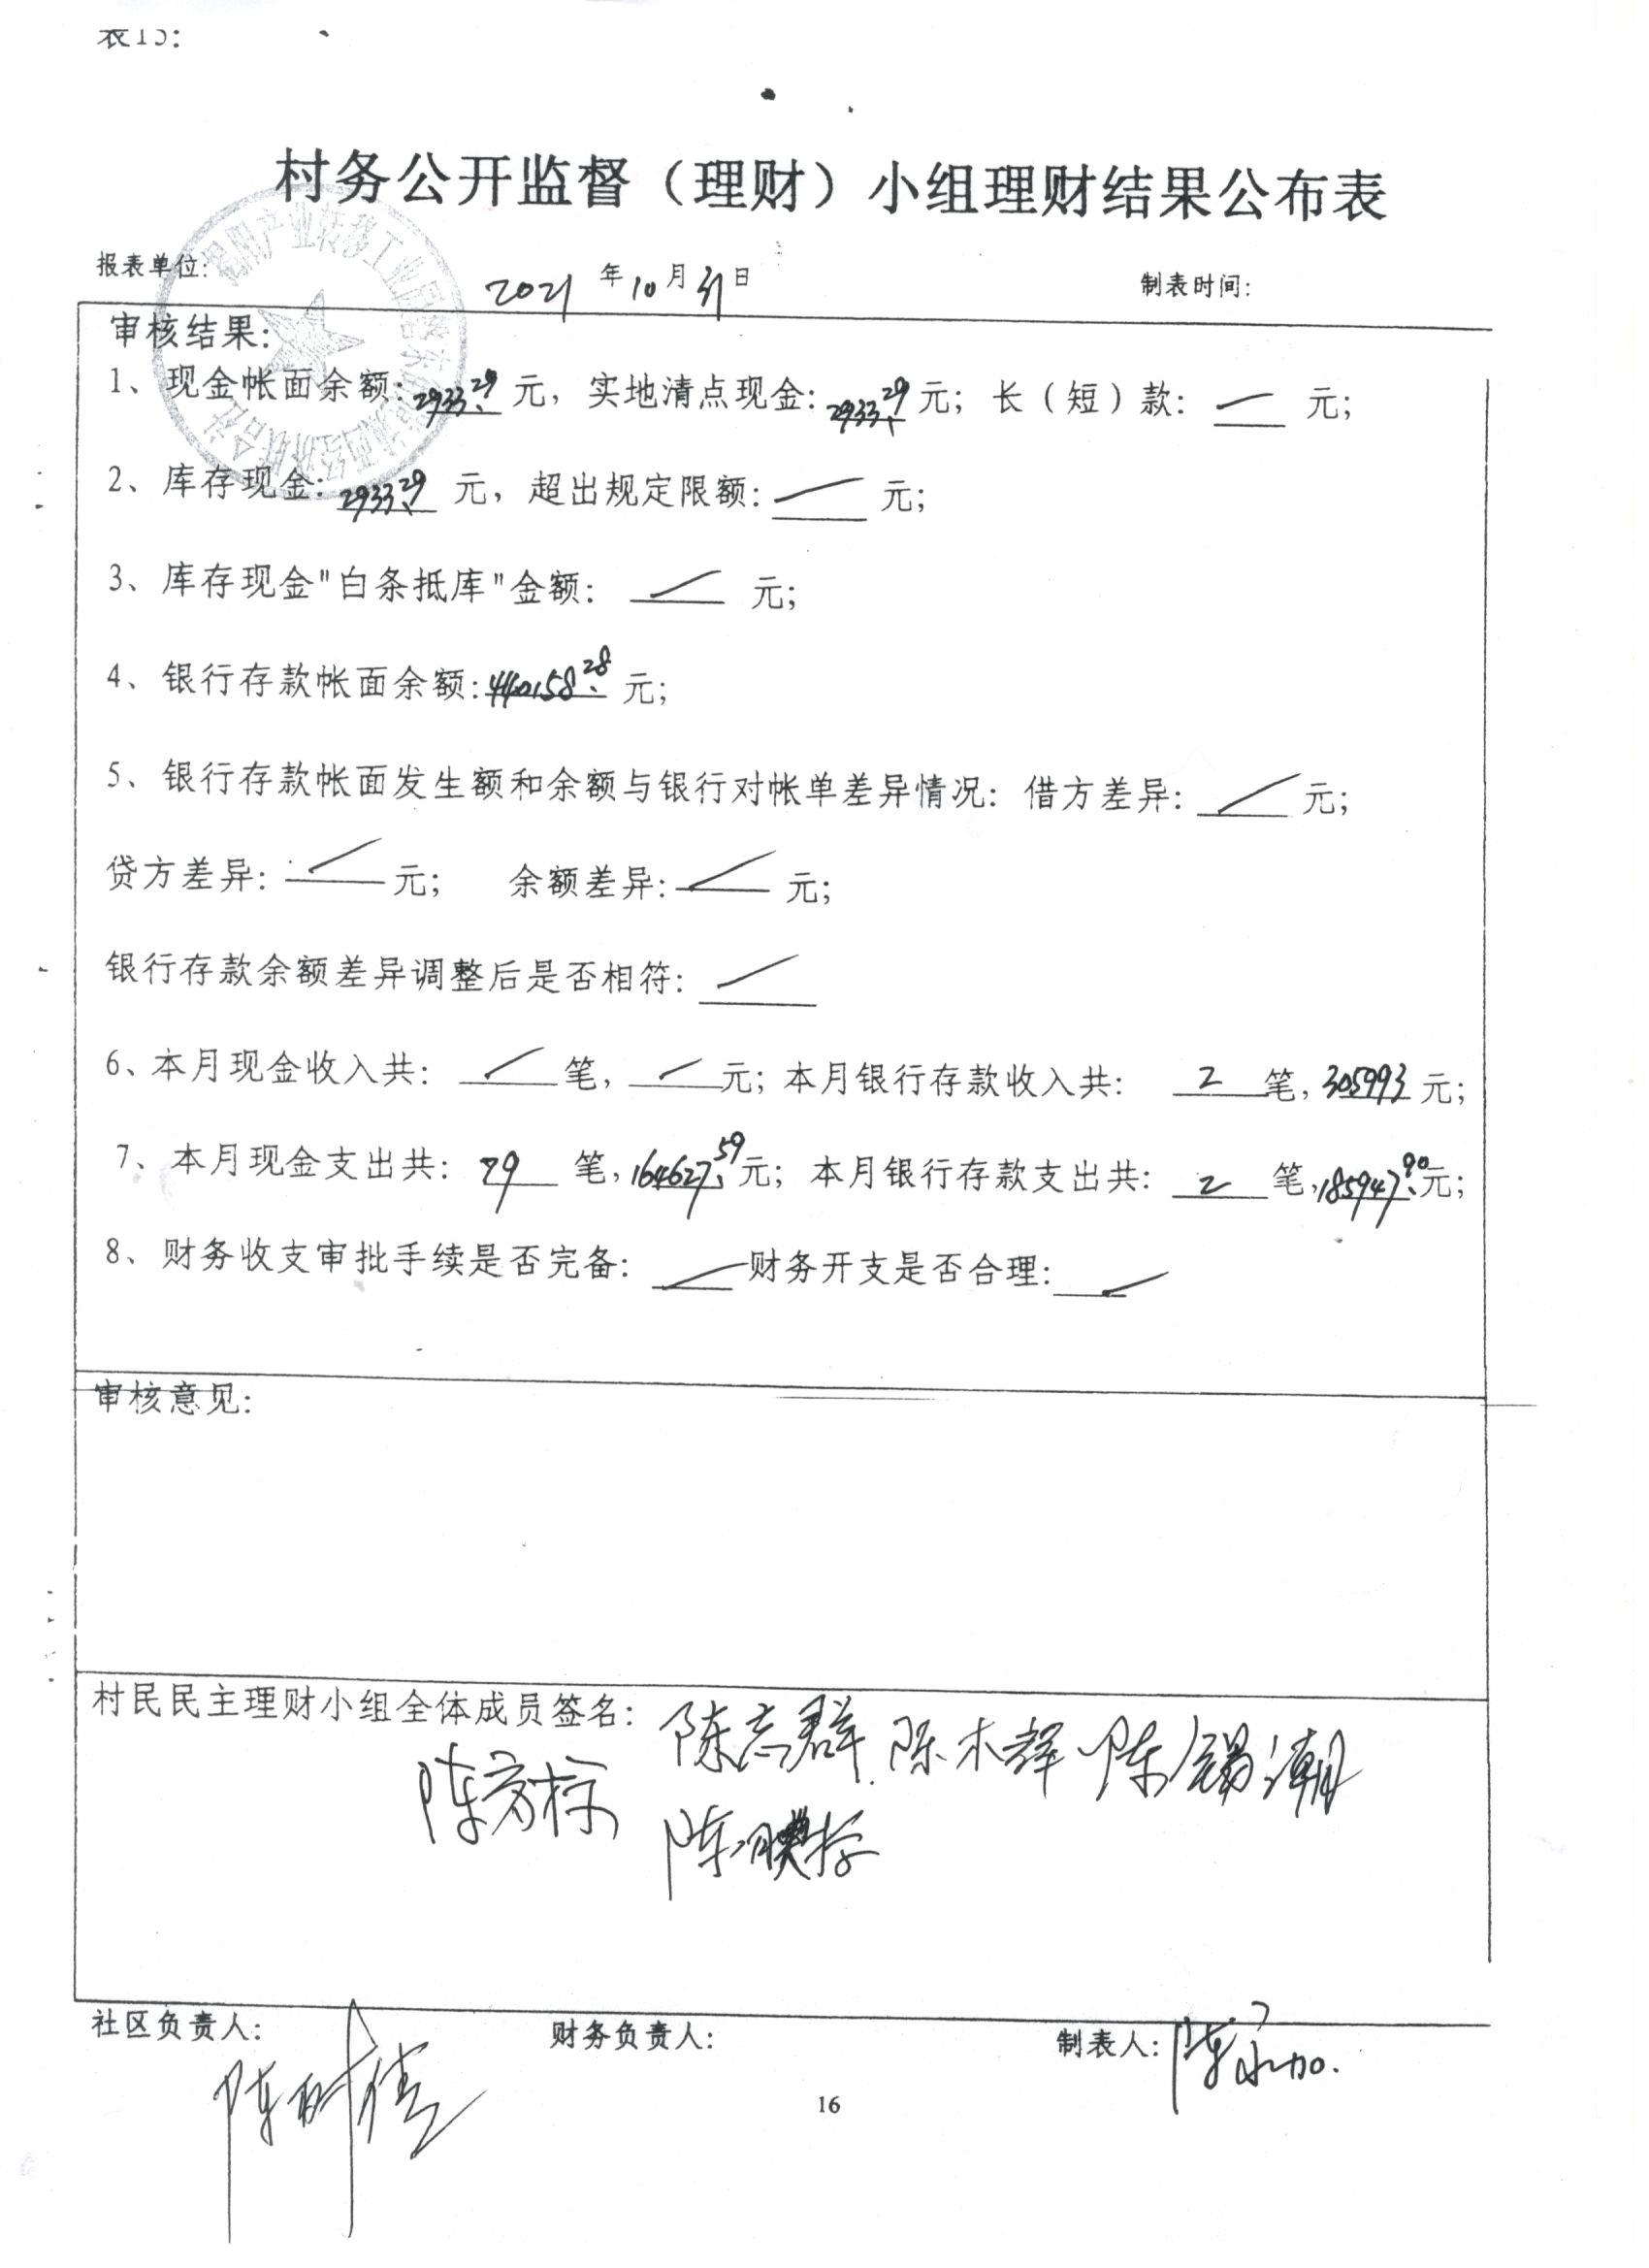 表15:
村务公开监督（理财）小组理财结果公布表
报表单位: 2021 年 10 月 31 日 制表时间:
审核结果:
1、现金帐面余额: 2933.29 元，实地清点现金: 2933.29 元; 长（短）款: 元;
2、库存现金: 2933.29 元，超出规定限额: 元;
3、库存现金"白条抵库"金额: 元;
4、银行存款帐面余额: 440158.28 元;
5、银行存款帐面发生额和余额与银行对帐单差异情况: 借方差异: 元;
贷方差异: 元; 余额差异: 元;
银行存款余额差异调整后是否相符:
6、本月现金收入共: 笔, 元; 本月银行存款收入共: 2 笔, 305993 元;
7、本月现金支出共: 29 笔, 164627.59 元; 本月银行存款支出共: 2 笔, 185947.90 元;
8、财务收支审批手续是否完备: 财务开支是否合理:
审核意见:
村民民主理财小组全体成员签名: 陈志群 陈木辉 陈锡潮
社区负责人: 财务负责人: 制表人: 陈永加
16